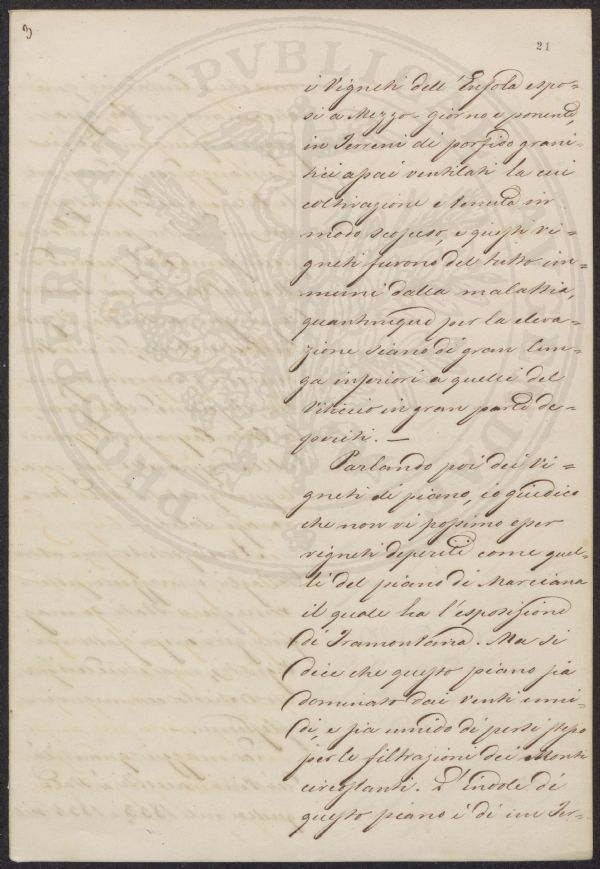 3
21
i Vigneti dell'Enfola espo-
sti a Mezzo-giorno e ponente,
in Terreni di porfido grani-
tici assai ventilati la cui
coltivazione è tenuta in
modo scosceso, e questi vi=
gneti furono del tutto im=
muni dalla malattia,
quantunque per la eleva-
zione siano di gran lun-
ga inferiori a quelli del
Viticcio in gran parte de-
periti. —
Parlando poi dei Vi=
gneti di piano, io giudico
che non vi possino esser
vigneti deperiti come quel-
li del piano di Marciana
il quale ha l'esposizione
di Tramontana. Ma si
dice che questo piano sia
dominato dai venti umi-
di, e sia umido di per se stesso
per le filtrazioni dei Monti
circostanti. L'indole di
questo piano è di un Ter-
PROSPERITATI PVBLICAE